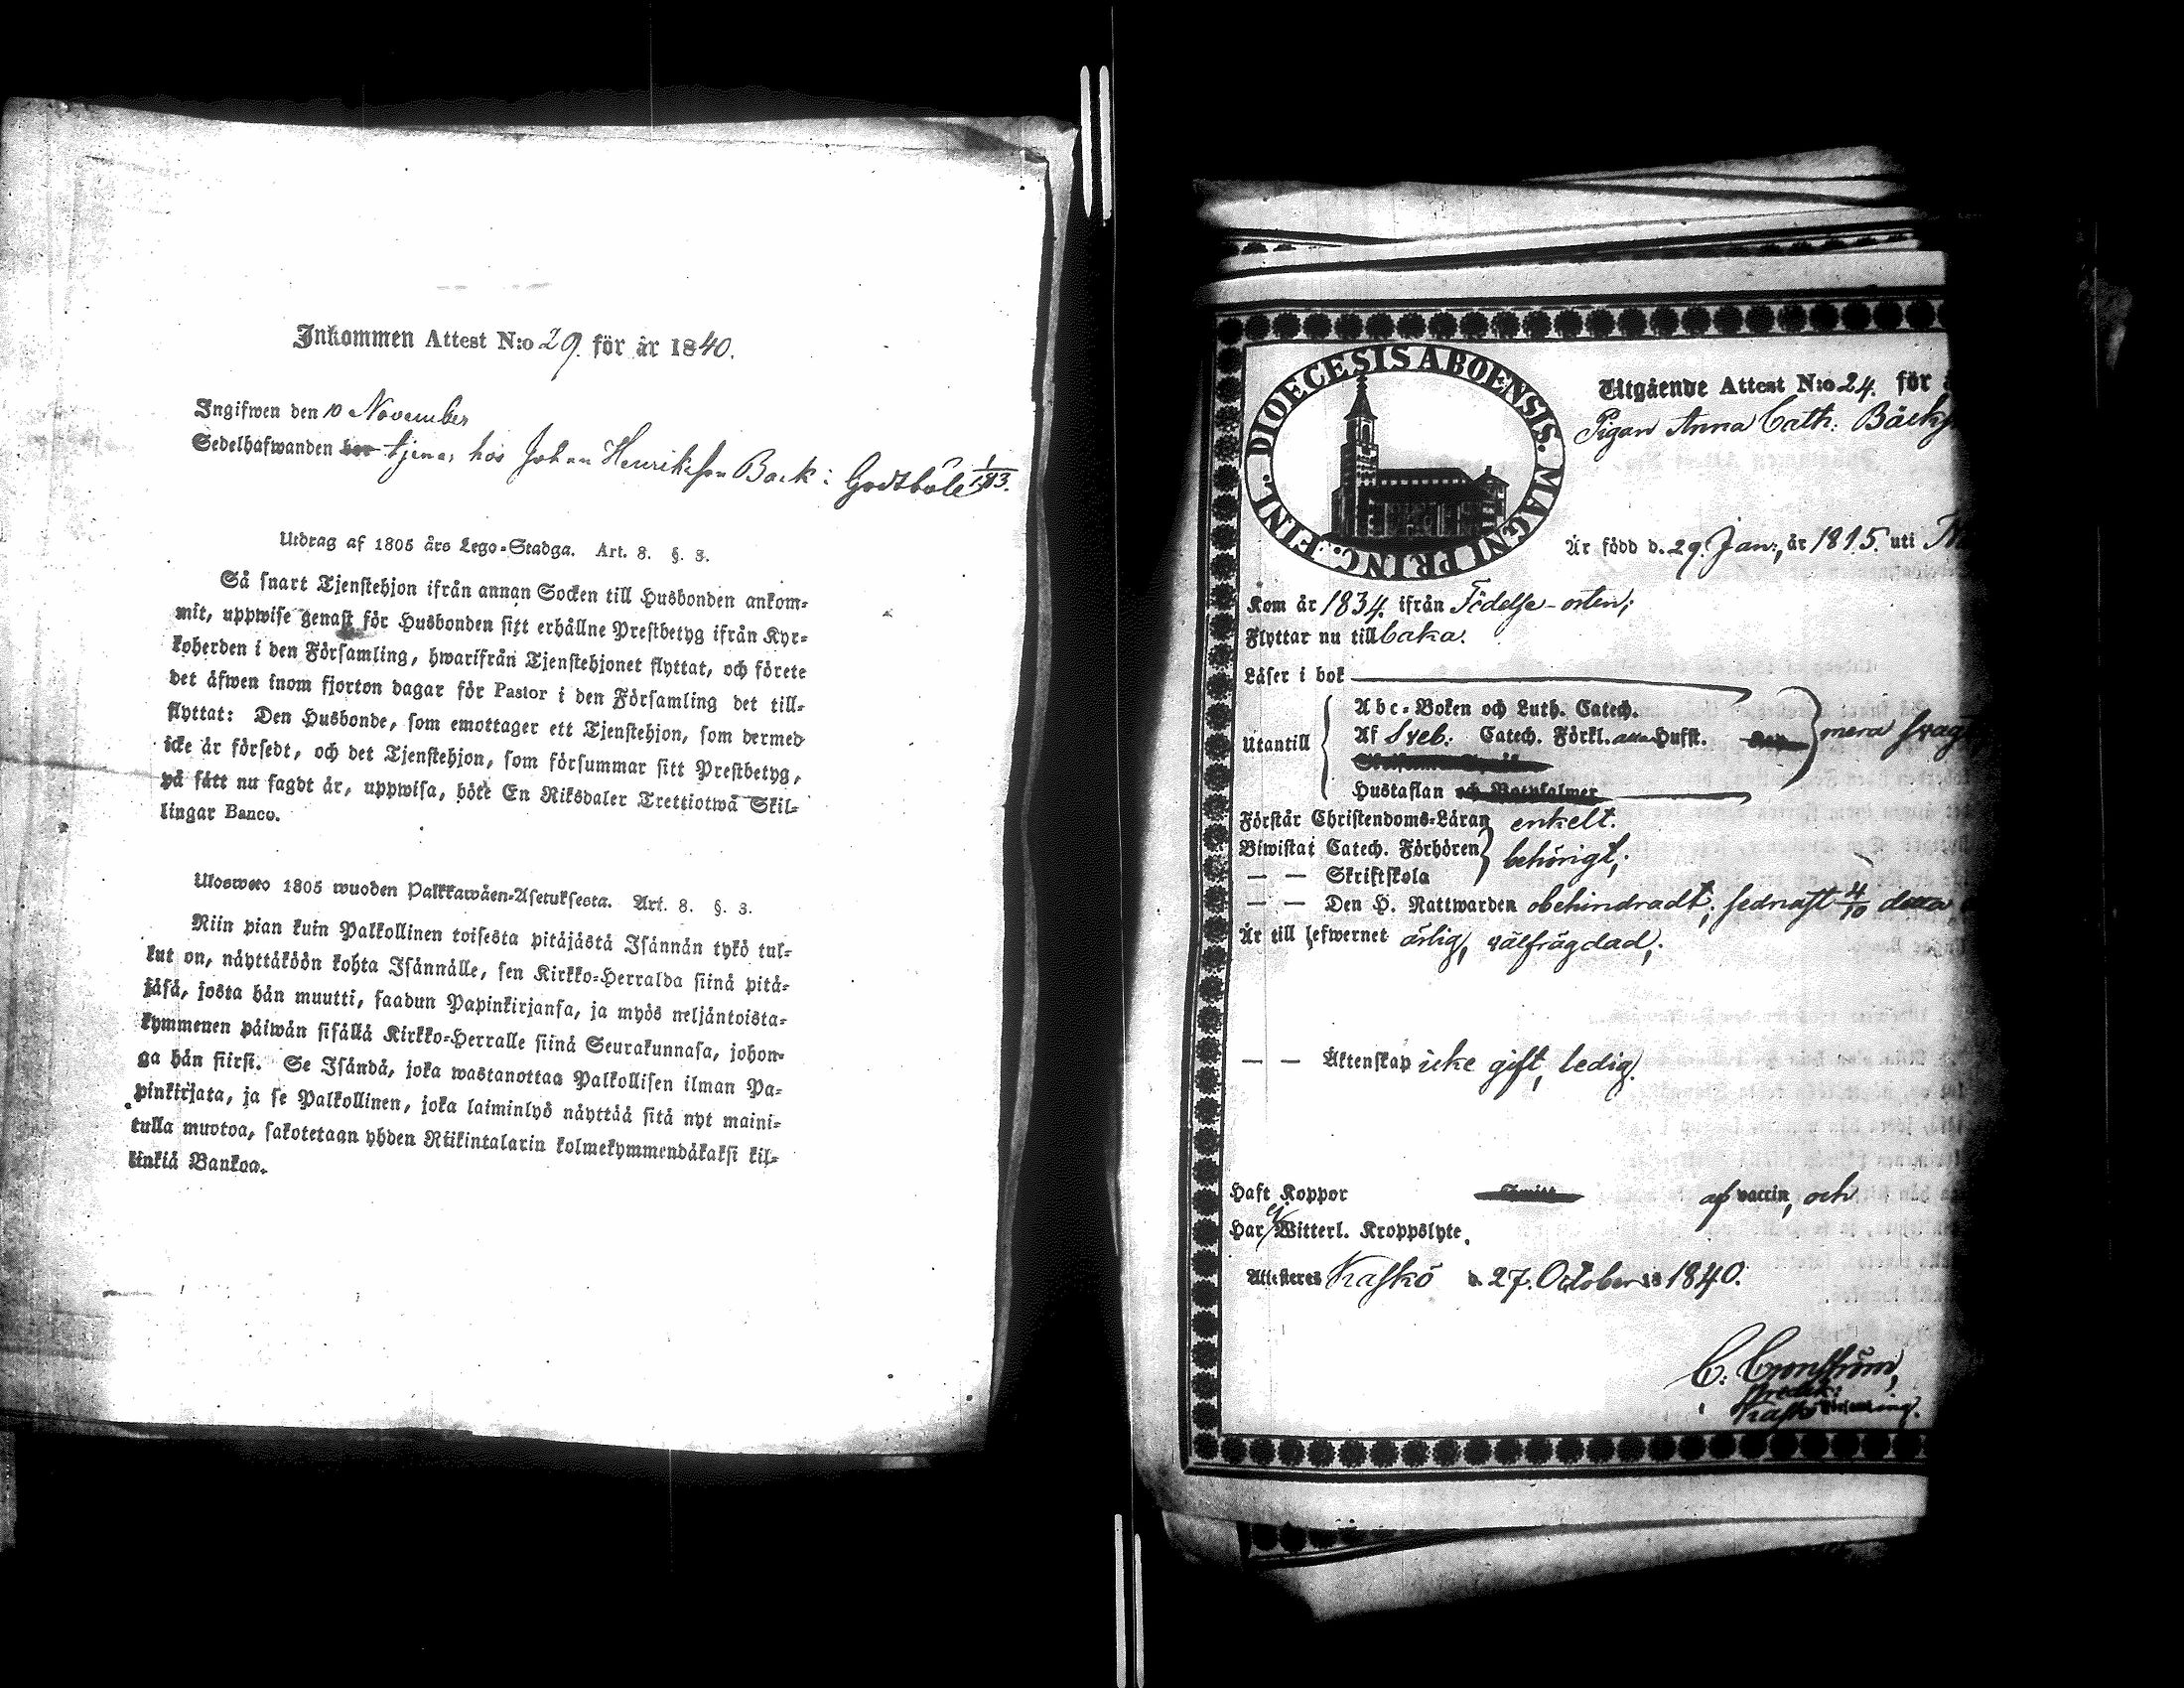 Inkommen Attest N:o 29. för år 1840.
Ingifwen den 10 November
Sedelhafwanden bor tjenar hos Johan Henriksson Back i Godtböle
Utdrag af 1805 års Lego-Stadga. Art. 8. §. 3.
Så snart Tjenstehjon ifrån annan Socken till Husbonden ankom-
mit, uppwise genast för Husbonden sitt erhållne Prestbetyg ifrån Kyr-
koherden i den Församling, hwarifrån Tjenstehjonet flyttat, och förete
det äfwen inom fjorton dagar för Pastor i den Församling det till-
flyttat: Den Husbonde, som emottager ett Tjenstehjon, som dermed
icke är försedt, och det Tjenstehjon, som försummar sitt Prestbetyg,
på sätt nu sagdt är, uppwisa, böte En Riksdaler Trettiotwå Skil-
lingar Banco.
Ulosweto 1805 wuoden Palkkawäen-Asetuksesta. Art. 8. §. 3.
Niin pian kuin Palkollinen toisesta pitäjästä Isännän tykö tul-
kut on, näyttäköön kohta Isännälle, sen Kirkko-Herralda siinä pitä-
jäsä, josta hän muutti, saadun Papinkirjansa, ja myös neljäntoista-
kymmenen päiwän sisällä Kirkko-Herralle siinä Seurakunnasa, johon-
ga hän siirsi. Se Isändä, joka wastanottaa Palkollisen ilman Pa-
pinkirjata, ja se Palkollinen, joka laiminlyö näyttää sitä nyt maini-
tulla muotoa, sakotetaan yhden Riikintalarin kolmekymmendäkaksi kil-
linkiä Bankoa.
DIOECESIS ABOENSIS. MAGNI PRINC. FINL.
Utgående Attest N:o 24. för
Pigan Anna Cath:
Är född d. 29. Jan:, år 1815. uti
Kom år 1834. ifrån Födelse-orten;
Flyttar nu tillbaka.
Läser i bok
Utantill
Abc-Boken och Luth. Catech.
Af Sveb. Catech. Förkl. Husst. mera
Hustaflan och Botpsalmer
Förstår Christendoms-Läran enkelt.
Biwistat Catech. Förhören behörigt;
— — Skriftskola
— — Den H. Nattwarden obehindradt, sednast 4/10 detta
Är till lefwernet ärlig, välfrägdad;
— — Äktenskap icke gift, ledig.
Haft Koppor af vaccin, och
Har ej Witterl. Kroppslyte.
Attesteras Kaskö d. 27. October 1840.
C. Cronström,
Predik:
Kaskö Församling.